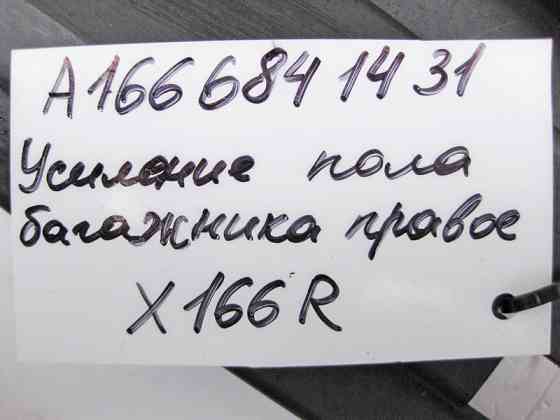 A166 684 14 31
Усиление пола
багажника правое
X166 R